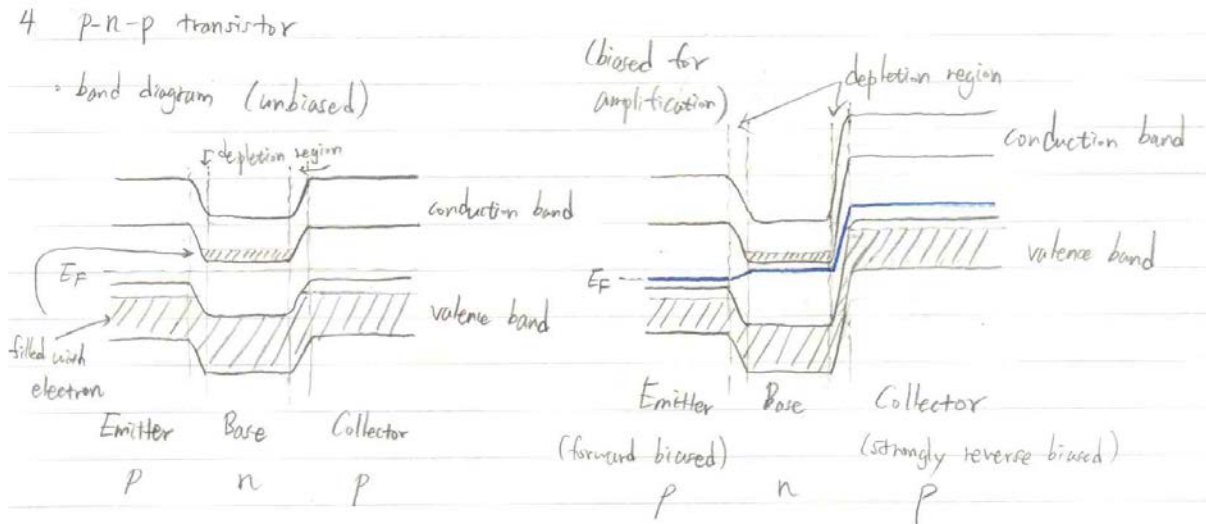 4 p-n-p transistor
· band diagram (unbiased)
depletion region
conduction band
E_F
valence band
filled with
electron
Emitter Base Collector
p n p
(biased for
amplification)
depletion region
conduction band
E_F
valence band
Emitter Base Collector
(forward biased) (strongly reverse biased)
p n p